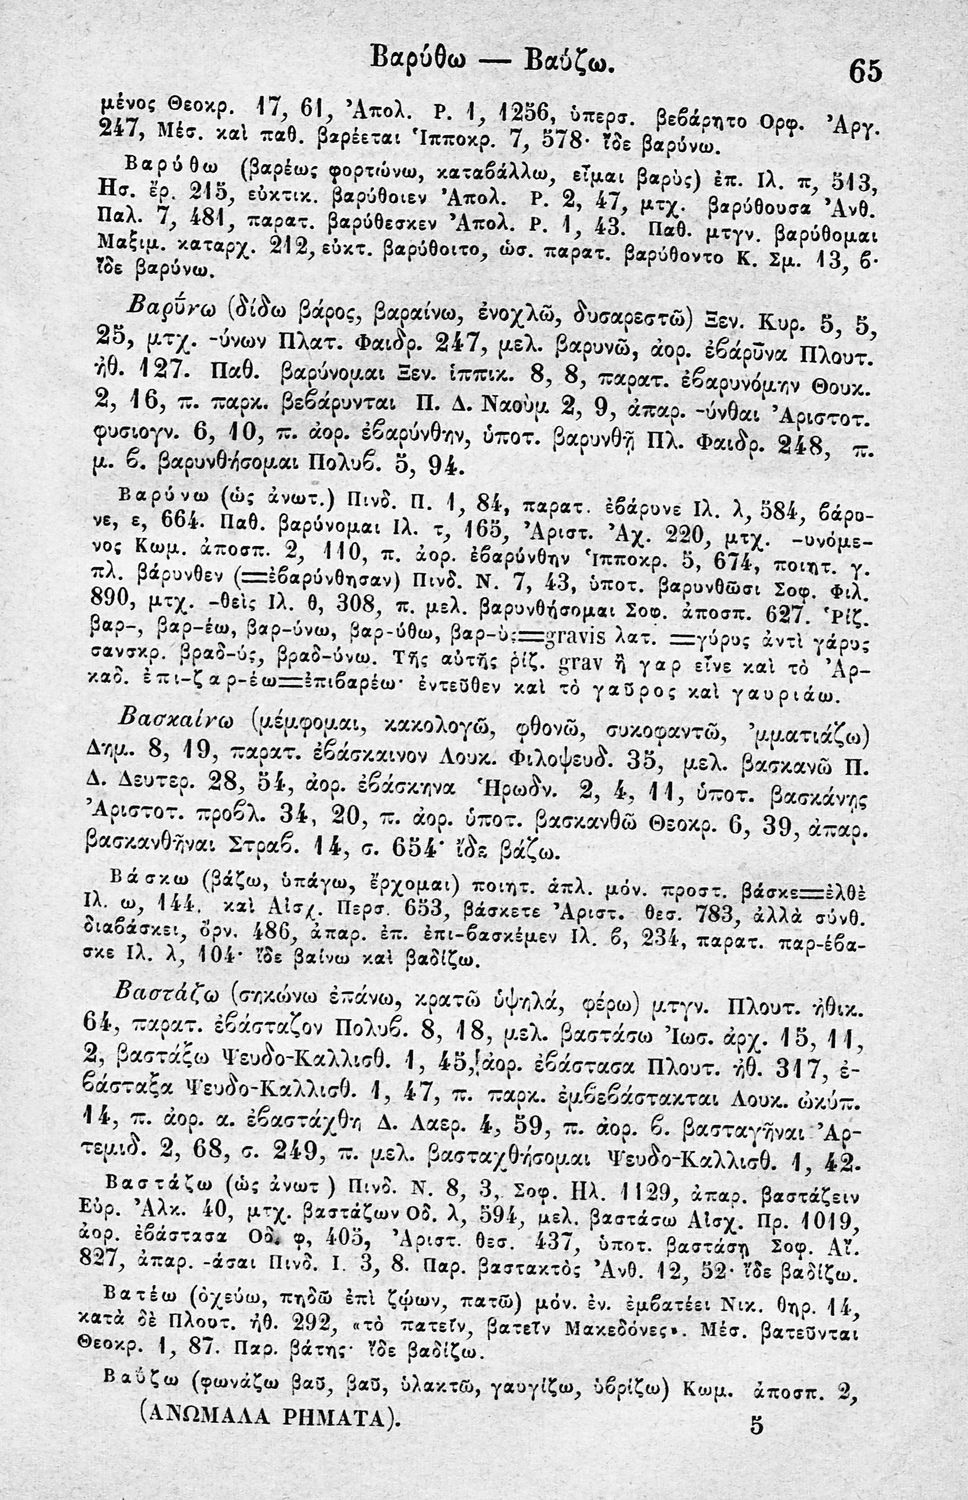 Βαρύθω — Βαΰζω.
65
μένος Θεοκρ. 17, 61, Ἀπολ. Ρ. 1, 1256, ὑπερσ. βεβάρητο Ορφ. Ἀργ.
247, Μέσ. καὶ παθ. βαρέεται Ἱπποκρ. 7, 578· ἴδε βαρύνω.
Βαρύθω (βαρέως φορτώνω, καταβάλλω, εἶμαι βαρὺς) ἐπ. Ιλ. π, 513,
Ησ. ἔρ. 215, εὐκτικ. βαρύθοιεν Ἀπολ. Ρ. 2, 47, μτχ. βαρύθουσα Ἀνθ.
Παλ. 7, 481, παρατ. βαρύθεσκεν Ἀπολ. Ρ. 1, 43. Παθ. μτγν. βαρύθομαι
Μαξιμ. καταρχ. 212, εὐκτ. βαρύθοιτο, ὡσ. παρατ. βαρύθοντο Κ. Σμ. 13, 6·
ἴδε βαρύνω.
Βαρῡ́νω (δίδω βάρος, βαραίνω, ἐνοχλῶ, δυσαρεστῶ) Ξεν. Κυρ. 5, 5,
25, μτχ. -ύνων Πλατ. Φαιδρ. 247, μελ. βαρυνῶ, ἀορ. ἐβάρῡνα Πλουτ.
ἠθ. 127. Παθ. βαρύνομαι Ξεν. ἱππικ. 8, 8, παρατ. ἐβαρυνόμην Θουκ.
2, 16, π. παρκ. βεβάρυνται Π. Δ. Ναοὺμ 2, 9, ἀπαρ. -ύνθαι Ἀριστοτ.
φυσιογν. 6, 10, π. ἀορ. ἐβαρύνθην, ὑποτ. βαρυνθῇ Πλ. Φαιδρ. 248, π.
μ. β. βαρυνθήσομαι Πολυβ. 5, 94.
Βαρύνω (ὡς ἀνωτ.) Πινδ. Π. 1, 84, παρατ. ἐβάρυνε Ιλ. λ, 584, βάρυ-
νε, ε, 664. Παθ. βαρύνομαι Ιλ. τ, 165, Ἀριστ. Ἀχ. 220, μτχ. -υνόμε-
νος Κωμ. ἀποσπ. 2, 110, π. ἀορ. ἐβαρύνθην Ἱπποκρ. 5, 674, ποιητ. γ.
πλ. βάρυνθεν (=ἐβαρύνθησαν) Πινδ. Ν. 7, 43, ὑποτ. βαρυνθῶσι Σοφ. Φιλ.
890, μτχ. -θεὶς Ιλ. θ, 308, π. μελ. βαρυνθήσομαι Σοφ. ἀποσπ. 627. Ῥίζ.
βαρ-, βαρ-έω, βαρ-ύνω, βαρ-ύθω, βαρ-ὺς=gravis λατ. =γύρυς ἀντὶ γάρυς
σανσκρ. βραδ-ύς, βραδ-ύνω. Τῆς αὐτῆς ῥίζ. grav ἢ γαρ εἶνε καὶ τὸ Ἀρ-
καδ. ἐπι-ζαρ-έω=ἐπιβαρέω· ἐντεῦθεν καὶ τὸ γαῦρος καὶ γαυριάω.
Βασκαίνω (μέμφομαι, κακολογῶ, φθονῶ, συκοφαντῶ, ᾽μματιάζω)
Δημ. 8, 19, παρατ. ἐβάσκαινον Λουκ. Φιλοψευδ. 35, μελ. βασκανῶ Π.
Δ. Δευτερ. 28, 54, ἀορ. ἐβάσκηνα Ἡρωδν. 2, 4, 11, ὑποτ. βασκάνῃς
Ἀριστοτ. προβλ. 34, 20, π. ἀορ. ὑποτ. βασκανθῶ Θεοκρ. 6, 39, ἀπαρ.
βασκανθῆναι Στραβ. 14, σ. 654· ἴδε βάζω.
Βάσκω (βάζω, ὑπάγω, ἔρχομαι) ποιητ. ἁπλ. μόν. προστ. βάσκε=ἐλθὲ
Ιλ. ω, 144. καὶ Αἰσχ. Περσ. 653, βάσκετε Ἀριστ. θεσ. 783, ἀλλὰ σύνθ.
διαβάσκει, ὄρν. 486, ἀπαρ. ἐπ. ἐπι-βασκέμεν Ιλ. β, 234, παρατ. παρ-έβα-
σκε Ιλ. λ, 104· ἴδε βαίνω καὶ βαδίζω.
Βαστάζω (σηκώνω ἐπάνω, κρατῶ ὑψηλά, φέρω) μτγν. Πλουτ. ἠθικ.
64, παρατ. ἐβάσταζον Πολυβ. 8, 18, μελ. βαστάσω Ἰωσ. ἀρχ. 15, 11,
2, βαστάξω Ψευδο-Καλλισθ. 1, 45, ἀορ. ἐβάστασα Πλουτ. ἠθ. 317, ἐ-
βάσταξα Ψευδο-Καλλισθ. 1, 47, π. παρκ. ἐμβεβάστακται Λουκ. ὠκύπ.
14, π. ἀορ. α. ἐβαστάχθη Δ. Λαερ. 4, 59, π. ἀορ. β. βασταγῆναι Ἀρ-
τεμιδ. 2, 68, σ. 249, π. μελ. βασταχθήσομαι Ψευδο-Καλλισθ. 1, 42.
Βαστάζω (ὡς ἀνωτ) Πινδ. Ν. 8, 3, Σοφ. Ηλ. 1129, ἀπαρ. βαστάζειν
Εὐρ. Ἀλκ. 40, μτχ. βαστάζων Οδ. λ, 594, μελ. βαστάσω Αἰσχ. Πρ. 1019,
ἀορ. ἐβάστασα Οδ. φ, 405, Ἀριστ. θεσ. 437, ὑποτ. βαστάσῃ Σοφ. Αἴ.
827, ἀπαρ. -άσαι Πινδ. Ι. 3, 8. Παρ. βαστακτὸς Ἀνθ. 12, 52· ἴδε βαδίζω.
Βατέω (ὀχεύω, πηδῶ ἐπὶ ζῴων, πατῶ) μόν. ἐν. ἐμβατέει Νικ. θηρ. 14,
κατὰ δὲ Πλουτ. ἠθ. 292, «τὸ πατεῖν, βατεῖν Μακεδόνες». Μέσ. βατεῦνται
Θεοκρ. 1, 87. Παρ. βάτης· ἴδε βαδίζω.
Βαΰζω (φωνάζω βαῦ, βαῦ, ὑλακτῶ, γαυγίζω, ὑβρίζω) Κωμ. ἀποσπ. 2,
(ΑΝΩΜΑΛΑ ΡΗΜΑΤΑ).
5